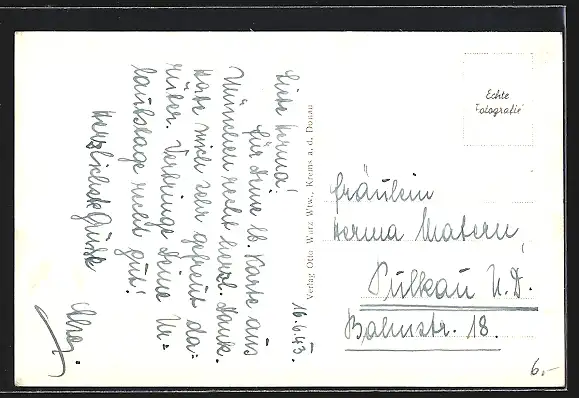 16.6.43.
Liebe Herma!
für Deine lb. Karte aus
München recht herzl. Dank.
Habe mich sehr gefreut da-
rüber. Verbringe Deine Ur-
laubstage recht gut!
Herzlichste Grüße
Verlag Otto Wurz Wtw., Krems a. d. Donau
Echte
Fotografie
Fräulein
Herma Matern,
Pulkau N.D.
Bahnstr. 18.
6.-